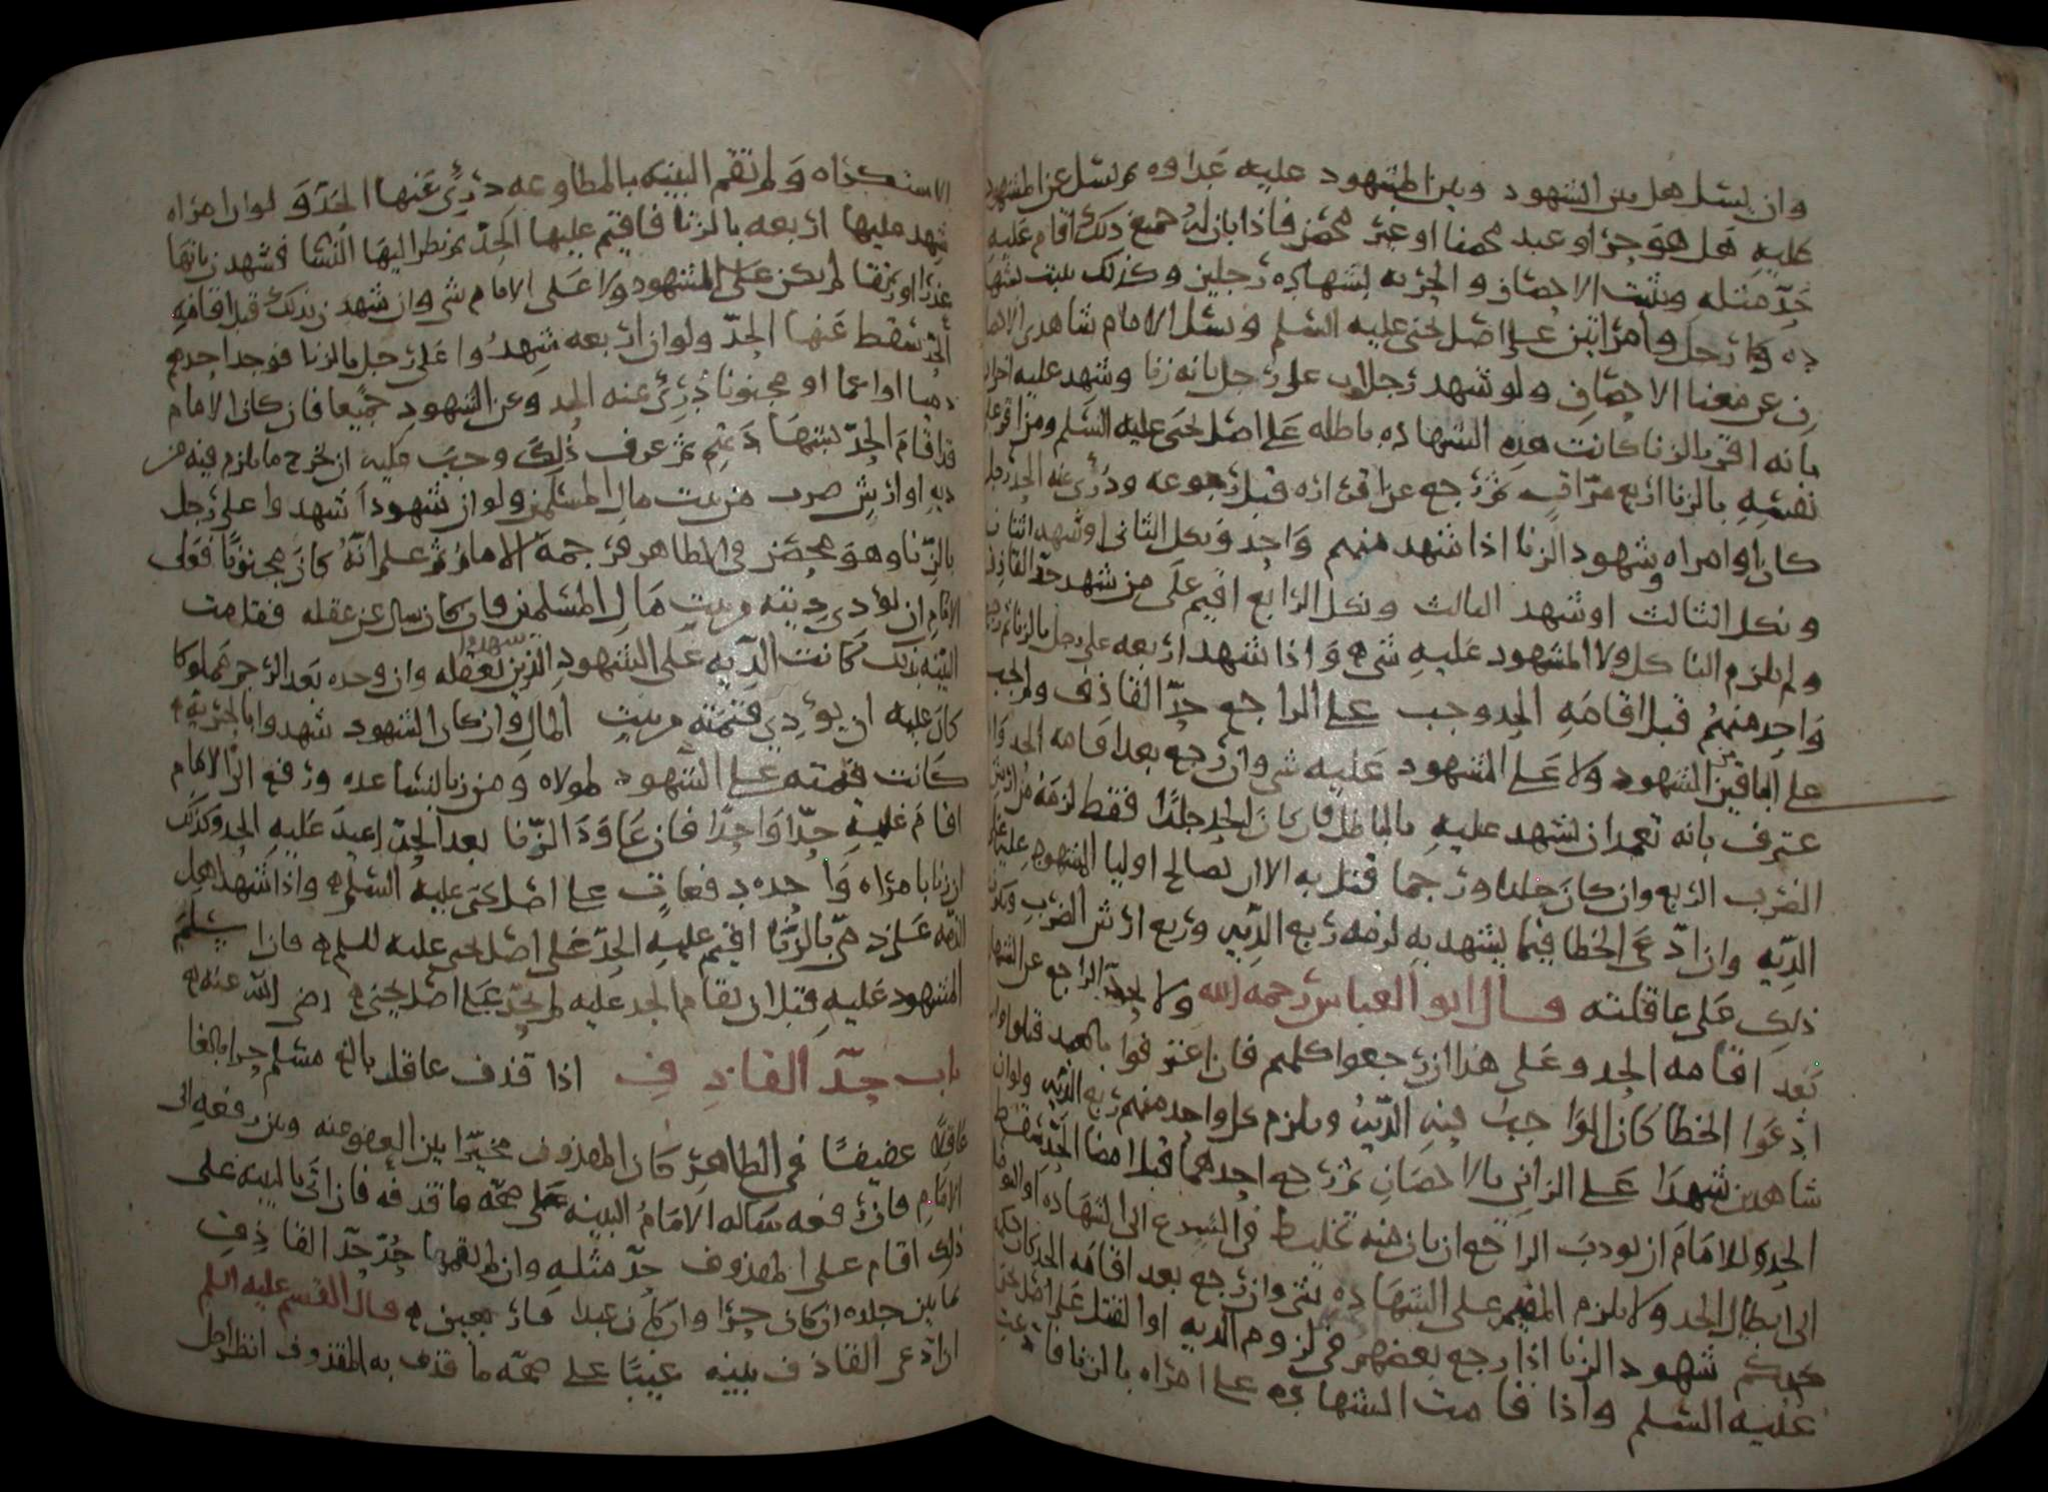 وان يسل هل بين الشهود وبين المشهود عليه عداوه ثم يسل عن المشهود
عليه هل هو حر او عبد محصنا او غير محصن فاذا بان له جميع ذلك اقام عليه
حد مثله ويثبت الاحصان والحريه بشهاده رجلين وكذلك يثبت بشها
ده رجل وامراتين على اصل يحيى عليه السلم ويسل الامام شاهدي الاحصا
ن عن معنا الاحصان ولو شهد رجلان على رجل بانه زنا وشهد عليه اخران
بانه اقر بالزنا كانت هذه الشهاده باطله على اصل يحيى عليه السلم ومن اقر على
نفسه بالزنا اربع مرات ثم رجع عن اقراره قبل رجوعه ودرئ عنه الحد رجلا
كان او امراه وشهود الزنا اذا شهد منهم واحد ونكل الثاني او شهد اثنان
ونكل الثالث او شهد الثالث ونكل الرابع اقيم على من شهد حد القاذف
ولم يلزم الناكل ولا المشهود عليه شي واذا شهد اربعه على رجل بالزنا ثم رجع
واحد منهم قبل اقامه الحد وجب على الراجع حد القاذف ولم يجب
على الباقين من الشهود ولا على المشهود عليه شي وان رجع بعد اقامه الحد وا
عترف بانه تعمد ان يشهد عليه بالباطل فان كان الحد جلدا فقط لزمه من ارش
الضرب الربع وان كان جلدا ورجما قتل به الا ان يصالح اوليا المشهود عليه على
الديه وان ادعى الخطا فيما يشهد به لزمه ربع الديه وربع ارش الضرب ويكون
ذلك على عاقلته قال ابو العباس رحمه الله ولا يحد الراجع عن الشهاد
بعد اقامه الحد وعلى هذا ان رجعوا كلهم فان اعترفوا بالعمد قتلوا وان
ادعوا الخطا كان الواجب فيه الديه ويلزم كل واحد منهم ربع الديه ولو ان
شاهدين شهدا على الزاني بالاحصان ثم رجع احدهما قبل امضا الحد سقط
الحد وللامام ان يودب الراجع ان بان منه تخليط في التسرع الى الشهاده او التوصل
الى ابطال الحد ولا يلزم المقيم على الشهاده شي وان رجع بعد اقامه الحد كان حكمه
كحكم شهود الزنا اذا رجع بعضهم في لزوم الديه او القتل على اصل يحيى
عليه السلم واذا قامت الشهاده على امراه بالزنا فادعت
الاستكراه ولم تقم البينه بالمطاوعه درئ عنها الحد ولو ان امراه
شهد عليها اربعه بالزنا فاقيم عليها الحد ثم نظر اليها النسا فشهدن بانها
عذرا او رتقا لم يكن على المشهود ولا على الامام شي وان شهدن بذلك قبل اقامه
الحد سقط عنها الحد ولو ان اربعه شهدوا على رجل بالزنا فوجد احدهم
ذميا او اعما او مجنونا درئ عنه الحد وعن الشهود جميعا فان كان الامام
قد اقام الحد بشهادتهم ثم عرف ذلك وجب عليه ان يخرج ما يلزم فيه من
ديه او ارش ضرب من بيت مال المسلمين ولو ان شهودا شهدوا على رجل
بالزنا وهو محصن في الظاهر فرجمه الامام ثم علم انه كان مجنونا فعلى
الامام ان يؤدي ديته من بيت مال المسلمين فان كان سال عن عقله فقامت
البينه بذلك كانت الديه على الشهود الذين شهدوا بعقله وان وجده بعد الرجم مملوكا
كان عليه ان يؤدي قيمته من بيت المال وان كان الشهود شهدوا بالحريه
كانت قيمته على الشهود لمولاه ومن زنا بنسا عده ورفع الى الامام
اقام عليه حدا واحدا فان عاود الزنا بعد الحد اعيد عليه الحد وكذلك
ان زنا بامراه واحده دفعات على اصل يحيى عليه السلم واذا شهد اهل
الذمه على ذمي بالزنا اقيم عليه الحد على اصل يحيى عليه السلم فان اسلم
المشهود عليه قبل ان يقام الحد عليه لم يحد على اصل يحيى رضي الله عنه
باب حد القاذف اذا قذف عاقل بالغ مسلما حرا بالغا
عاقلا عفيفا في الظاهر كان المقذوف مخيرا بين العفو عنه وبين رفعه الى
الامام فان رفعه ساله الامام البينه على صحه ما قذفه فان اتى بالبينه على
ذلك اقام على المقذوف حد مثله وان لم يقمها حد حد القاذف
ثمانين جلده ان كان حرا وان كان عبدا فاربعين قال القسم عليه السلم
ان ادعى القاذف بينه غيبا على صحه ما قذف به المقذوف انظر اجل